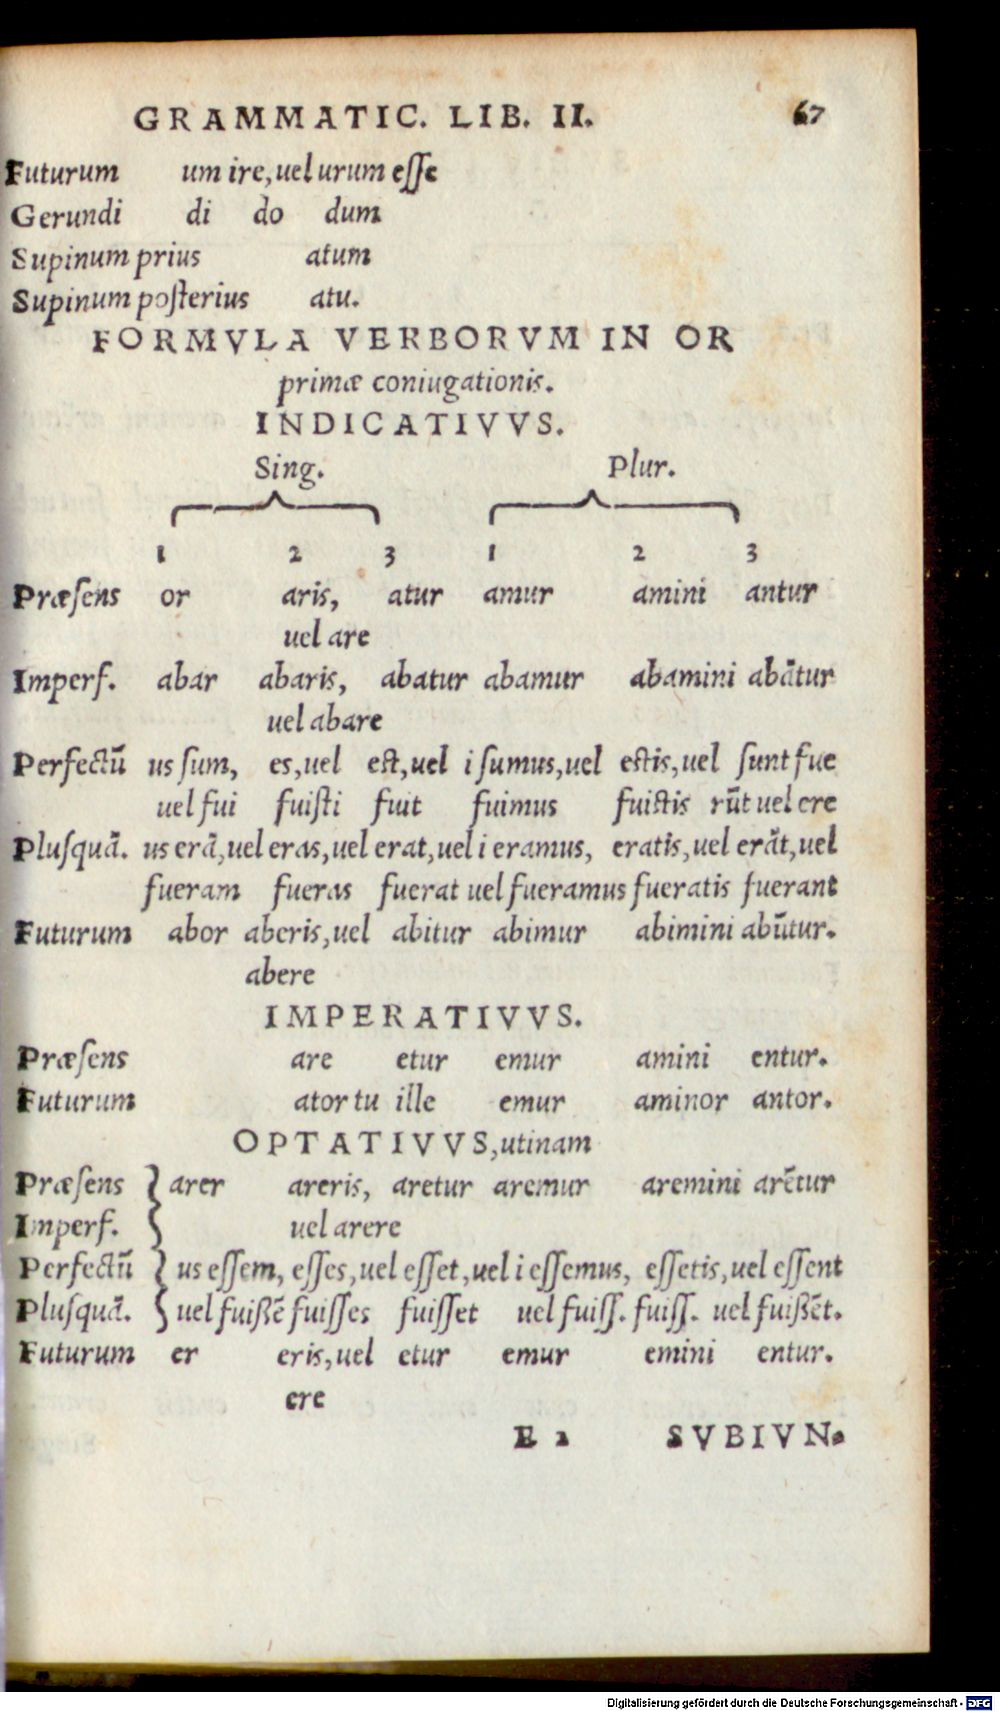 GRAMMATIC. LIB. II. 67
Futurum um ire, uel urum eſſe
Gerundi di do dum
Supinum prius atum
Supinum poſterius atu.
FORMVLA VERBORVM IN OR
primæ coniugationis.
INDICATIVVS.
Sing. Plur.
1 2 3 1 2 3
Præſens or aris, atur amur amini antur
uel are
Imperf. abar abaris, abatur abamur abamini abātur
uel abare
Perfectū us ſum, es, uel est, uel i ſumus, uel estis, uel ſunt fue
uel fui fuiſti fuit fuimus fuistis rūt uel ere
Pluſquā. us erā, uel eras, uel erat, uel i eramus, eratis, uel erāt, uel
fueram fueras fuerat uel fueramus fueratis fuerant
Futurum abor aberis, uel abitur abimur abimini abūtur.
abere
IMPERATIVVS.
Præſens are etur emur amini entur.
Futurum ator tu ille emur aminor antor.
OPTATIVVS, utinam
Præſens } arer areris, aretur aremur aremini arētur
Imperf. } uel arere
Perfectū } us eſſem, eſſes, uel eſſet, uel i eſſemus, eſſetis, uel eſſent
Pluſquā. } uel fuißē fuiſſes fuiſſet uel fuiſſ. fuiſſ. uel fuißēt.
Futurum er eris, uel etur emur emini entur.
ere
E 2 SVBIVN.
Digitalisierung gefördert durch die Deutsche Forschungsgemeinschaft - DFG